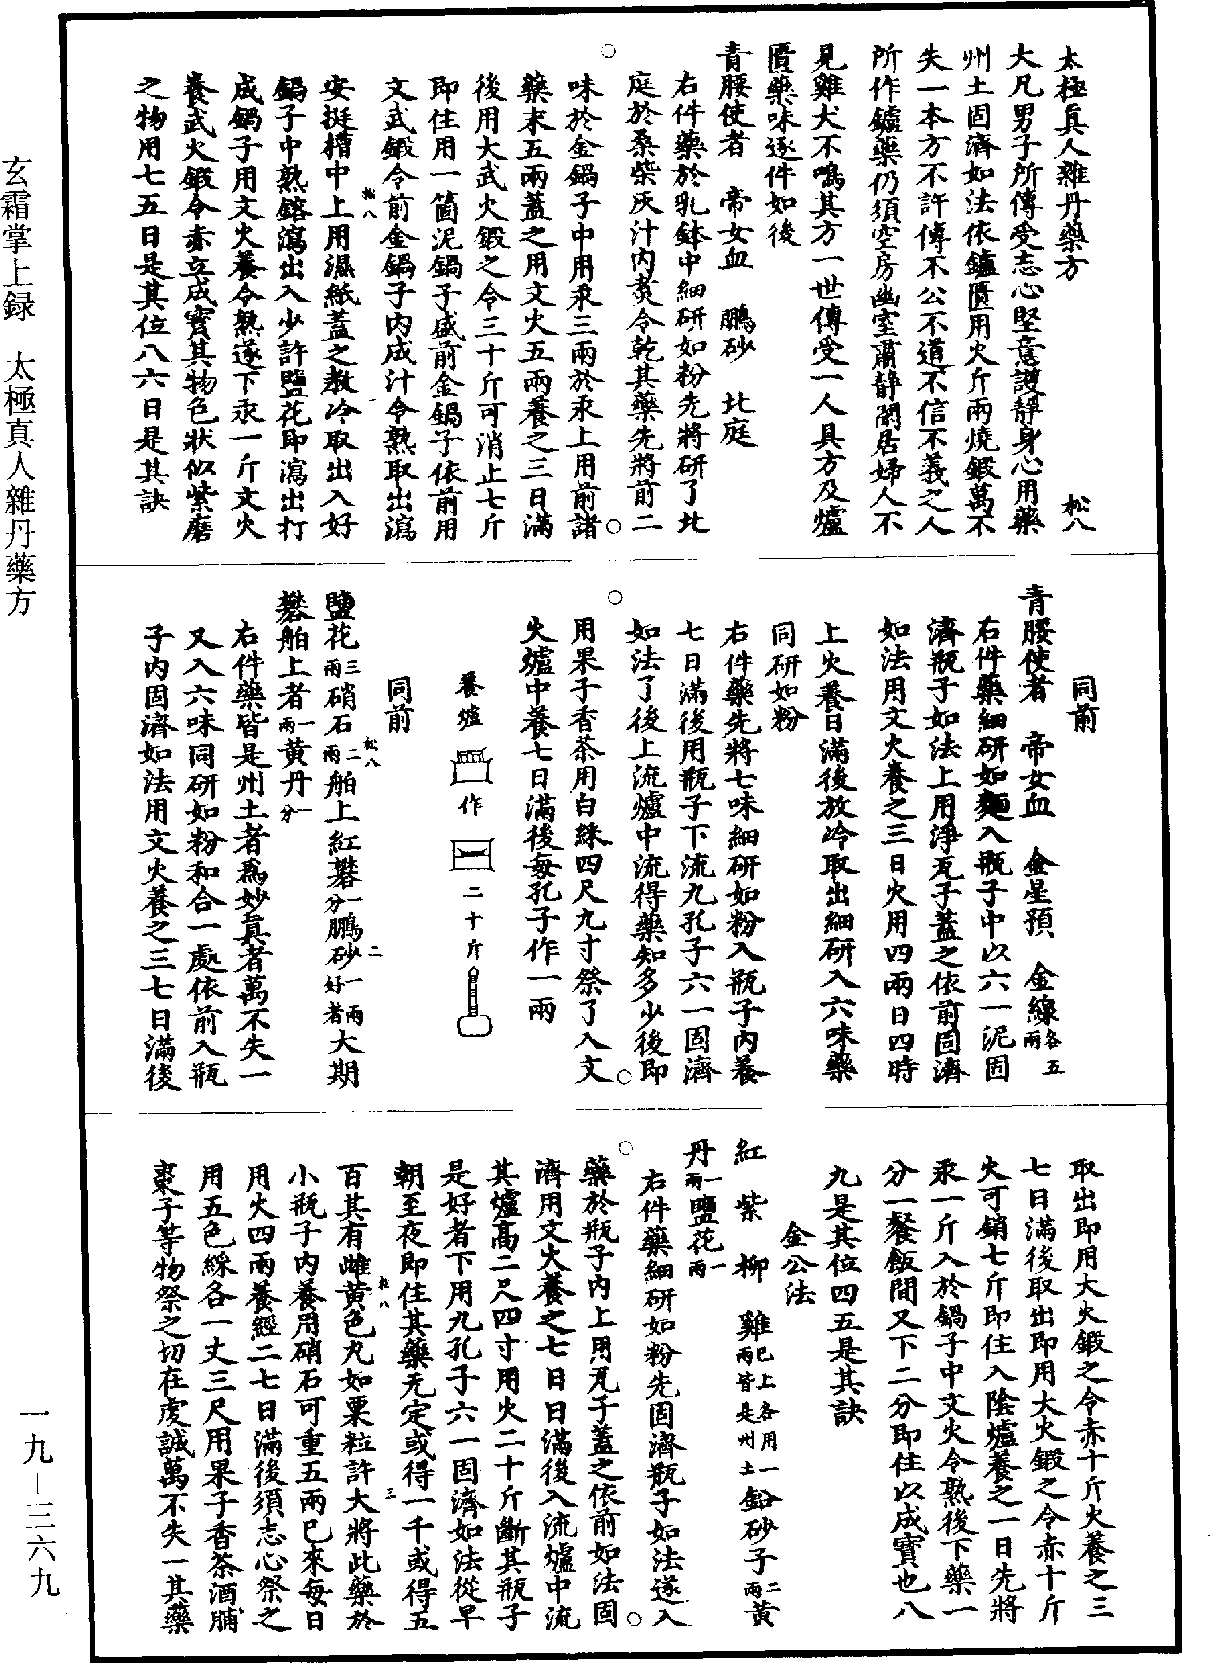 太極眞人雜丹藥方　松八
大凡男子所傳受志心堅意護靜身心用藥
州土固濟如法依鑪匱用火斤兩燒鍛萬不
失一本方不許傳不公不道不信不義之人
所作鑪藥仍須空房幽室肅靜閑居婦人不
見雞犬不鳴其方一世傳受一人具方及爐
匱藥味逐件如後
青腰使者　帝女血　鵬砂　北庭
右件藥於乳鉢中細研如粉先將研了北
庭於桑柴灰汁內煑令乾其藥先將前二
味於金鍋子中用汞三兩於汞上用前諸
藥末五兩蓋之用文火五兩養之三日滿
後用大武火鍛之令三十斤可消止七斤
即住用一箇泥鍋子盛前金鍋子依前用
文武鍛令前金鍋子內成汁令熟取出瀉
松八
安挺槽中上用濕紙蓋之教冷取出入好
鍋子中熟鎔瀉出入少許鹽花即瀉出打
成鍋子用文火養令熟遂下汞一斤文火
養武火鍛令赤立成寳其物色狀似紫磨
之物用七五日是其位八六日是其訣
同前
青腰使者　帝女血　金星預　金線各五兩
右件藥細研如麵入瓶子中以六一泥固
濟瓶子如法上用淨瓦子蓋之依前固濟
如法用文火養之三日火用四兩日四時
上火養日滿後放冷取出細研入六味藥
同研如粉
右件藥先將七味細研如粉入瓶子內養
七日滿後用瓶子下流九孔子六一固濟
如法了後上流爐中流得藥知多少後即
用果子香茶用白綵四尺九寸祭了入文
火爐中養七日滿後每孔子作一兩
養爐　作　二十斤
同前
松八　二
鹽花三兩硝石二兩舶上紅礬一分鵬砂一兩好者大期
礬舶上者一兩黃丹一分
右件藥皆是州土者爲妙眞者萬不失一
又入六味同研如粉和合一處依前入瓶
子內固濟如法用文火養之三七日滿後
取出即用大火鍛之令赤十斤火養之三
七日滿後取出即用大火鍛之令赤十斤
火可銷七斤即住入陰爐養之一日先將
汞一斤入於鍋子中文火令熟後下藥一
分一餐飯間又下二分即住以成寳也八
九是其位四五是其訣
金公法
紅　紫　柳　雞巳上各用一兩皆是州土鉛砂子二兩黃
丹一兩鹽花一兩
右件藥細研如粉先固濟瓶子如法遂入
藥於瓶子內上用瓦子蓋之依前如法固
濟用文火養之七日日滿後入流爐中流
其爐高二尺四寸用火二十斤斷其瓶子
是好者下用九孔子六一固濟如法從早
朝至夜即住其藥无定或得一千或得五
松八　三
百其有雌黃色丸如粟粒許大將此藥於
小瓶子內養用硝石可重五兩巳來每日
用火四兩養經二七日滿後須志心祭之
用五色綵各一丈三尺用果子香茶酒脯
棗子等物祭之切在虔誠萬不失一其藥
玄霜掌上録　太極真人雜丹藥方
一九－三六九